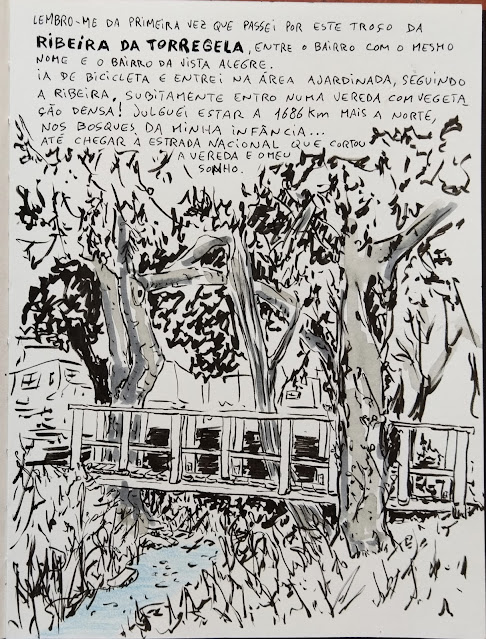 LEMBRO-ME DA PRIMEIRA VEZ QUE PASSEI POR ESTE TROÇO DA
RIBEIRA DA TORREGELA, ENTRE O BAIRRO COM O MESMO
NOME E O BAIRRO DA VISTA ALEGRE.
IA DE BICICLETA E ENTREI NA ÁREA AJARDINADA, SEGUINDO
A RIBEIRA, SUBITAMENTE ENTRO NUMA VEREDA COM VEGETA
ÇÃO DENSA! JULGUEI ESTAR A 1686 KM MAIS A NORTE,
NOS BOSQUES DA MINHA INFÂNCIA...
ATÉ CHEGAR À ESTRADA NACIONAL QUE CORTOU
A VEREDA E O MEU
SONHO.